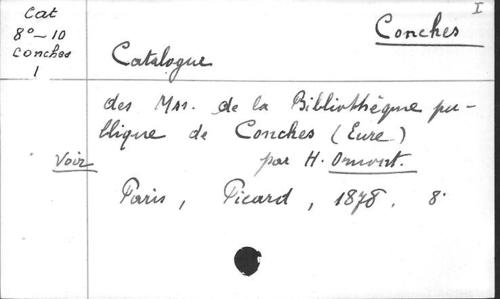 I
Cat
8°-10
Conches
1
Conches
Catalogue
des Mss. de la Bibliothèque pu-
blique de Conches (Eure)
Voir par H. Omont.
Paris, Picard, 1878. 8°